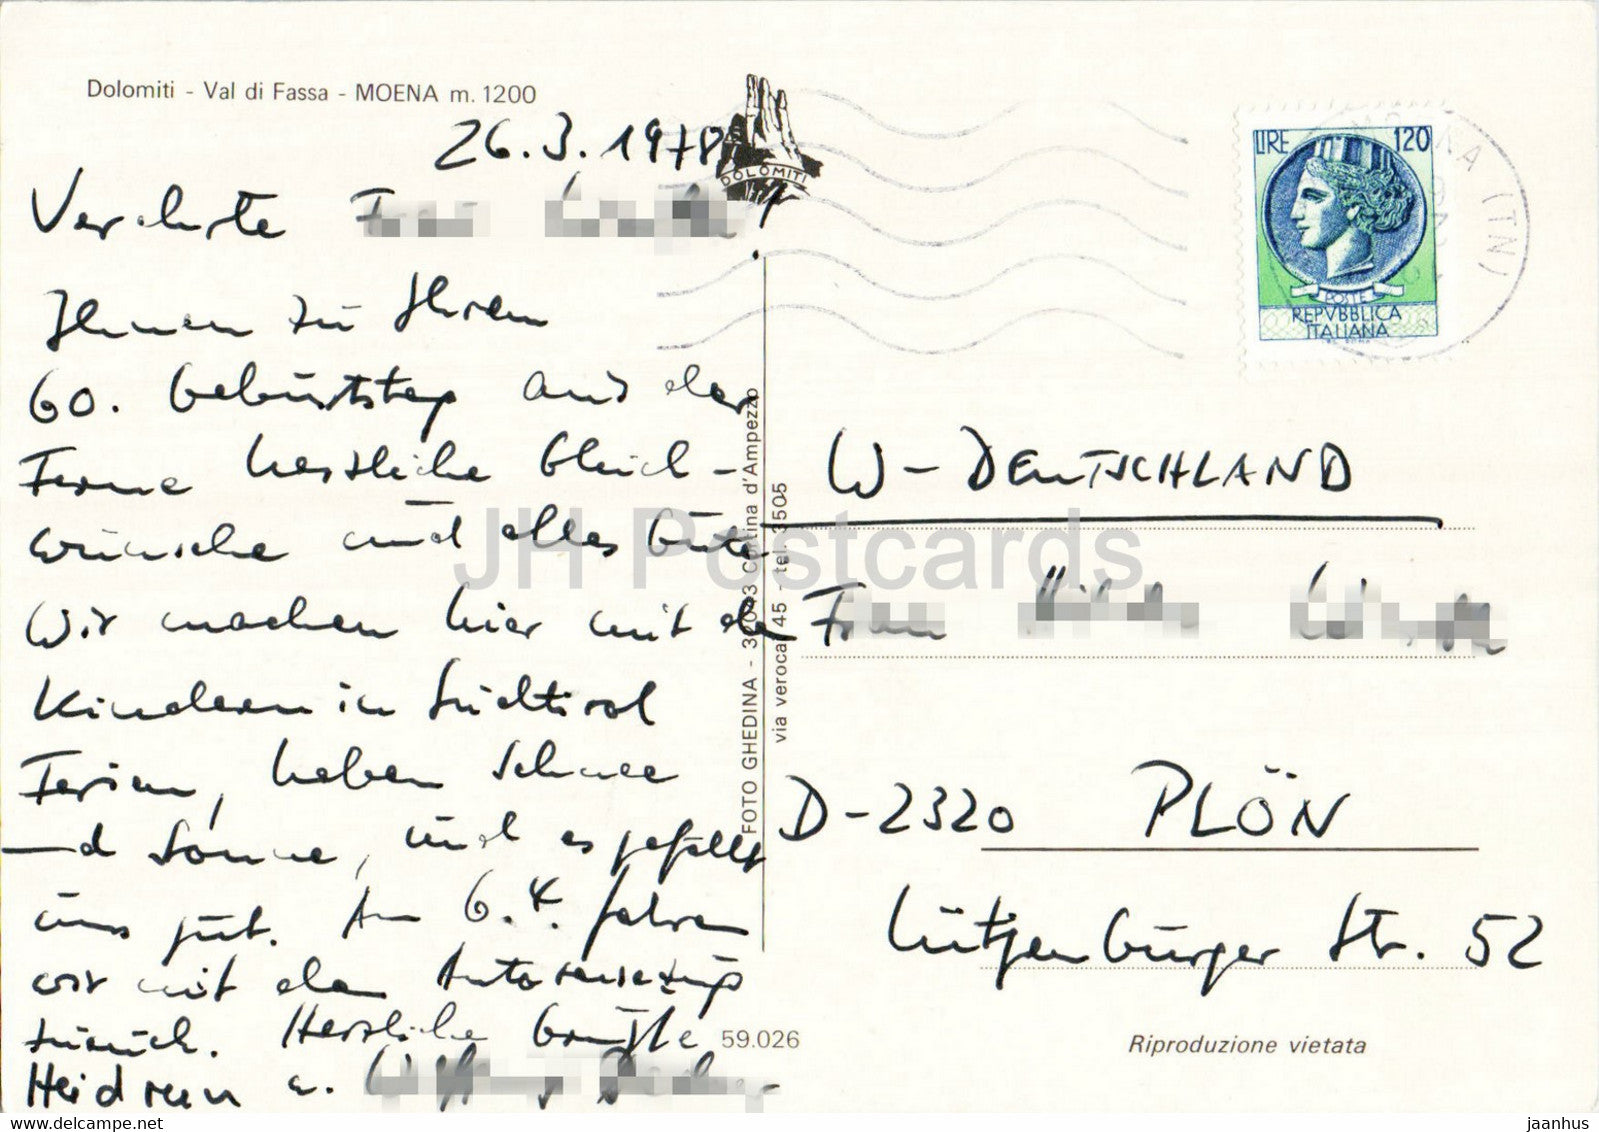 Dolomiti - Val di Fassa - MOENA m. 1200
26.3.1978
DOLOMITI
Verehrte Frau
Ihnen zu Ihrem
60. Geburtstag aus der
Ferne herzliche Glück-
wünsche und alles Gute
Wir machen hier mit den
Kindern in Südtirol
Ferien, haben Schnee
und Sonne, und es gefällt
uns gut. Am 6.4. fahren
wir mit dem Autoreisezug
zurück. Herzliche Grüße
Heidrun u.
FOTO GHEDINA - 32043 Cortina d'Ampezzo
via verocai 45 - tel. 3505
59.026
LIRE 120
POSTE
REPVBBLICA
ITALIANA
MOENA (TN)
W-DEUTSCHLAND
Frau
D-2320 PLÖN
Lütjenburger Str. 52
Riproduzione vietata
JH Postcards
www.delcampe.net
jaanhus